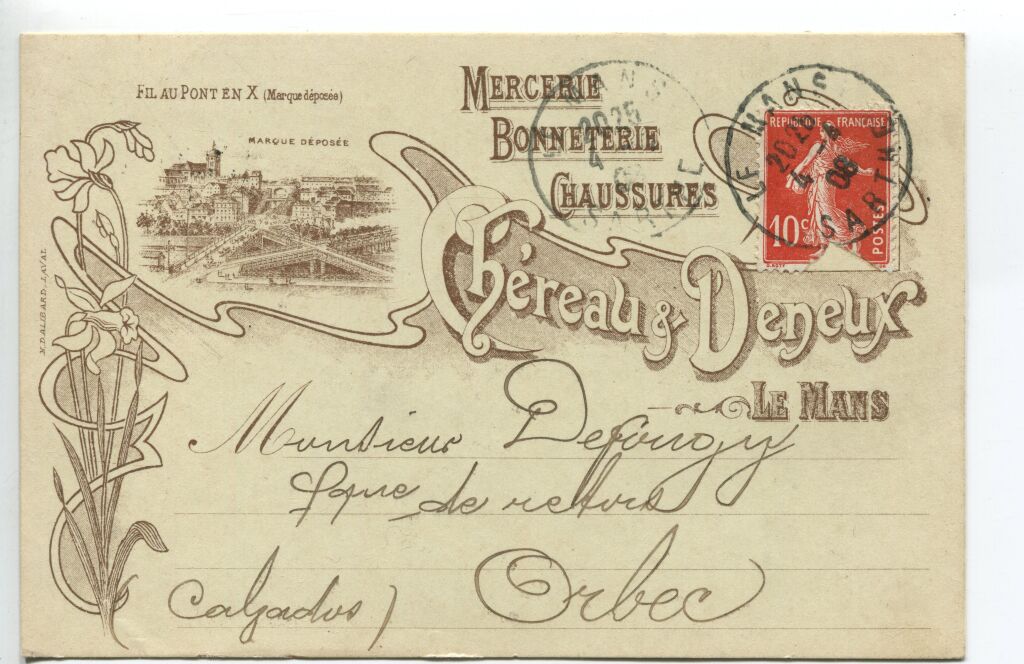 FIL AU PONT EN X (Marque déposée)
MARQUE DÉPOSÉE
MERCERIE
BONNETERIE
CHAUSSURES
Chéreau & Deneux
LE MANS
LE MANS
20 25
4
08
SARTHE
REPUBLIQUE FRANÇAISE
10c
POSTES
LE MANS
20 25
4
08
SARTHE
Monsieur
fque de retors
Orbec
Calvados)